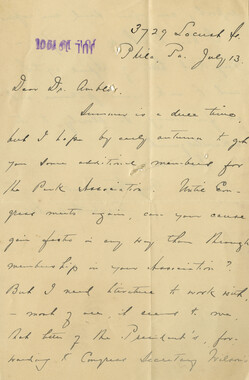 3729 Locust St.
Phila, Pa. July 13.
Dear Dr. Ambler,
Summer is a dull time,
but I hope by early autumn to get
you some additional members for
the Park Association. Until Con-
gress meets again, can your cause
gain facts in any way than through
membership in your Association?
But I need literature to work with,
– most of all, it seems to me,
that letter of the President's, for-
warding to Congress Secretary Wilson's